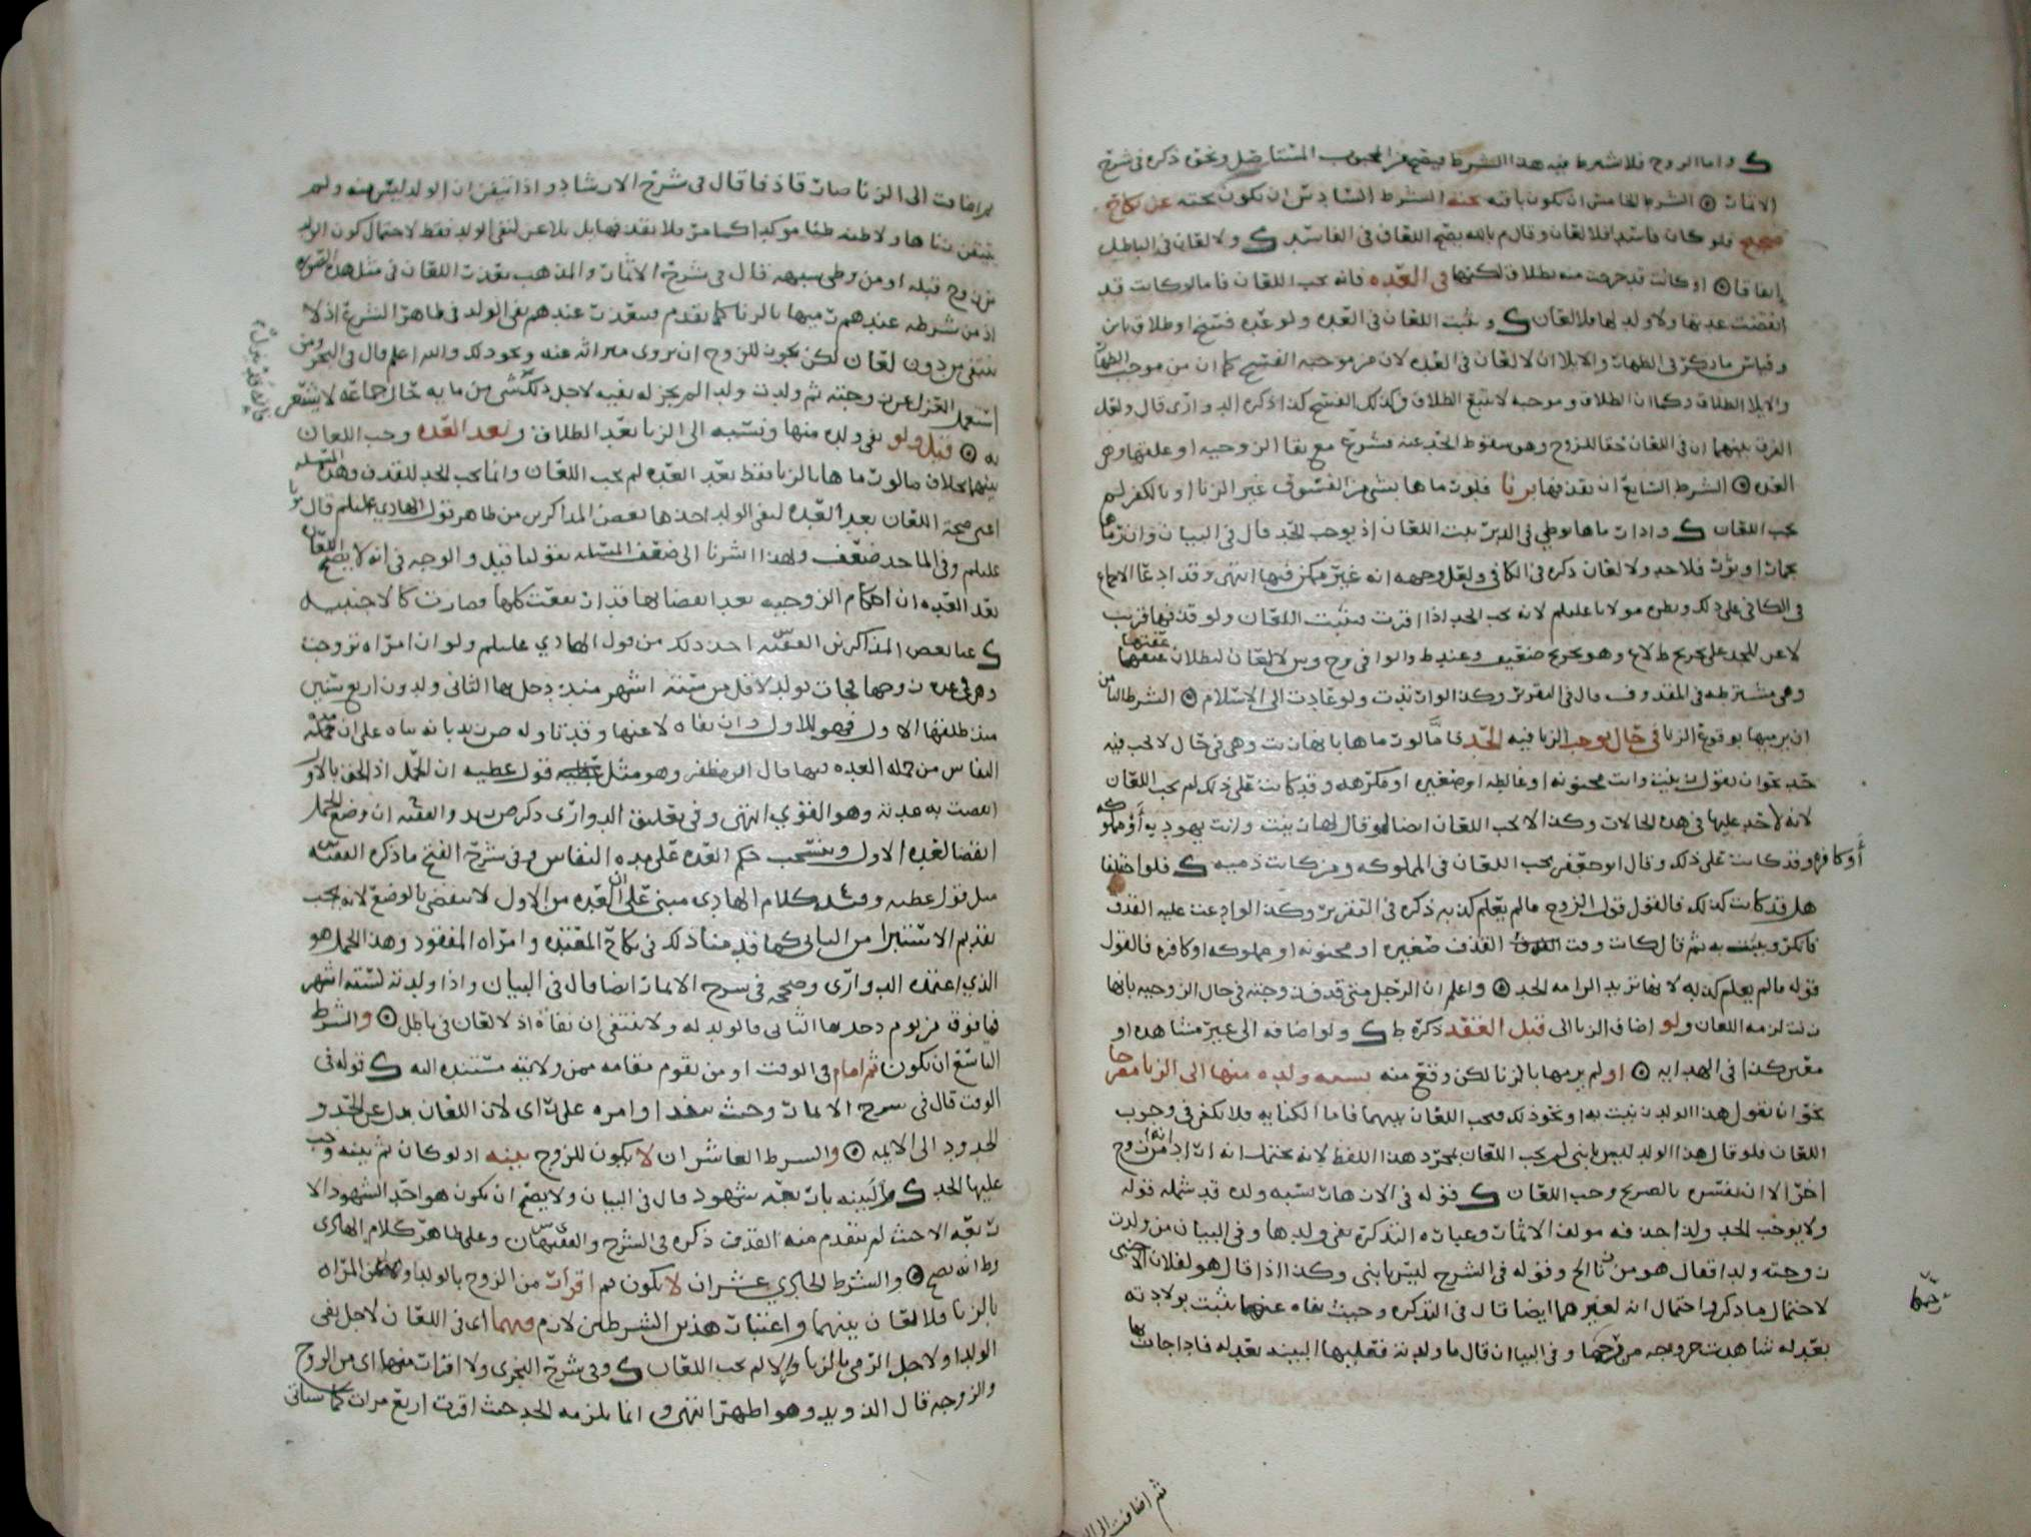 ك واما الزوج فلا يشترط فيه هذا الشرط فيصح من المجبوب المستاصل ونحوه ذكره في شرح
الاثمار الشرط الخامس ان تكون باقيه تحته الشرط السادس ان تكون تحته عن نكاح
صحيح فلو كان فاسدا فلا لعان وقال م بالله يصح اللعان في الفاسد ك ولا لعان في الباطل
اتفاقا او كانت قد خرجت منه بطلاق لكنها في العده فانه يجب اللعان فاما لو كانت قد
انقضت عدتها ولا ولد لها فلا لعان ك ويثبت اللعان في العده ولو عده فسخ او طلاق باين
وقياس ما ذكر في الظهار والايلا ان لا لعان في العده لان من موجبه الفسخ كما ان من موجب الظهار
والايلا الطلاق وكما ان الطلاق وموجبه لا يتبع الطلاق فكذلك الفسخ كذا ذكره الدواري قال ولعل
الفرق بينهما ان في اللعان حقا للزوج وهو سقوط الحد عنه فشرع مع بقا الزوجيه او علقتها وهي
العده الشرط السابع ان يقذفها بزنا فلو رماها بشي من الفسوق غير الزنا او بالكفر لم
يجب اللعان ك واذا رماها بوطي في الدبر ثبت اللعان اذ يوجب الحد قال في البيان وان رماها
بحمار او ثور فلا حد ولا لعان ذكره في الكافي ولعل وجهه انه غير ممكن فيها انتهى وقد ادعا الاجماع
في الكافي على ذلك ونظره مولانا عليلم لانه يجب الحد اذا اقرت فيثبت اللعان ولو قذفها فزنت
لاعن للحد على تخريج ط لا ع وهو تخريج ضعيف وعند ط والوافي وح وش لا لعان لبطلان عفتها
وهي مشترطه في المقذوف قال في التقرير وكذا لو ارتدت ولو عادت الى الاسلام الشرط الثامن
ان يرميها بوقوع الزنا في حال يوجب الزنا فيه الحد فاما لو رماها بانها زنت وهي في حال لا يجب فيه
حد نحو ان يقول زنيت وانت مجنونه او غالطه او صغيره او مكرهه وقد كانت على ذلك لم يجب اللعان
لانه لا حد عليها في هذه الحالات وكذا لا يجب اللعان ايضا لو قال لها زنيت وانت يهوديه او مملوكه
او كافره وقد كانت على ذلك وقال ابو جعفر يجب اللعان في المملوكه ومن كانت ذميه ك فلو اختلفا
هل قد كانت كذلك فالقول قول الزوج ما لم يعلم كذبه ذكره في التقرير وكذا لو ادعت عليه القذف
فانكر وبينت به ثم قال كانت وقت القذف صغيره او مجنونه او مملوكه او كافره فالقول
قوله ما لم يعلم كذبه لانها تريد الزامه الحد واعلم ان الرجل متى قذف زوجته في حال الزوجيه بانها
زنت لزمه اللعان ولو اضاف الزنا الى قبل العقد ذكره ط ك ولو اضافه الى غير مشاهده او
معين كذا في الهدايه او لم يرمها بالزنا لكن وقع منه نسبه ولده منها الى الزنا مصرحا
نحو ان يقول هذا الولد زنيت به او نحو ذلك فيجب اللعان بينهما فاما الكنايه فلا تكفي في وجوب
اللعان فلو قال هذا الولد ليس بابني لم يجب اللعان بمجرد هذا اللفظ لانه يحتمل انه اراد انه من زوج
اخر الا ان يفسر بالصريح وجب اللعان ك فقوله في الازهار نسبه ولده قد شمله قوله
ولا يوجب الحد ولذا حذفه مولف الاثمار وعباره التذكره نفى ولدها وفي البيان من ولدت
زوجته ولدا فقال هو من زنا الخ وقوله في الشرح ليس بابني وكذا اذا قال هو لفلان الاجنبي
لاحتمال ما ذكر واحتمال انه لغيرهما ايضا قال في التذكره وحيث نفاه عنهما يثبت بولادته
بعدله شاهدت خروجه من فرجها وفي البيان ان قال ما ولدته فعليها البينه بعدله فاذا جات بها
فرجها
ثم اضافت الى ال
ثم اضافت الى الزنا صار قاذفا قال في شرح الارشاد واذا تيقن ان الولد ليس منه ولم
يتيقن زناها ولا ظنه ظنا موكدا كما مر فلا يقذفها بل يلاعن لنفي الولد فقط لاحتمال كون الولد
من زوج قبله او من وطي شبهه قال في شرح الاثمار والمذهب تعذر اللعان في مثل هذه الصوره
اذ من شرطه عندهم رميها بالزنا كما تقدم فيتعذر عندهم نفي الولد في ظاهر الشرع اذ لا
ينتفي من دون لعان لكن يجوز للزوج ان يزوي ميراثه عنه ونحو ذلك والله اعلم قال في البحر ومن
استعمل العزل عن زوجته ثم ولدت ولدا لم يجز له نفيه لاجل ذلك شي من مايه حال جماعه لا يشعر
به قيل ولو نفى ولده منها ونسبه الى الزنا بعد الطلاق وبعد العده وجب اللعان
بينهما بخلاف ما لو رماها بالزنا فقط بعد العده لم يجب اللعان وانما يجب الحد للقذف وهذه المسله
اعني صحة اللعان بعد العده لنفي الولد اخذها بعض المذاكرين من ظاهر قول الهادي عليلم قال مولانا
عليلم وفي الماخذ ضعف ولهذا اشرنا الى ضعف المسله بقولنا قيل والوجه في انه لا يصح اللعان
بعد العده ان احكام الزوجيه بعد انقضايها قد ارتفعت كلها فصارت كالاجنبيه
ك عنا بعض المذاكرين الفقيه س اخذ ذلك من قول الهادي عليلم ولو ان امراه تزوجت
وهي في عده زوجها فجات بولد لاقل من سته اشهر منذ دخل بها الثاني ولدون اربع سنين
منذ طلقها الاول فهو للاول وان نفاه لاعنها وقد تاوله ص زيد بانه بناه على ان مده
النفاس من جمله العده فيها قال ابن مظفر وهو مثل قول عطيه ان الحمل اذا لحق بالاول
انقضت به عدته وهو القوي انتهى وفي تعليق الدواري ذكر ص زيد والفقيه ع ان وضع الحمل
انقضا لعده الاول وينسحب حكم العده على مده النفاس وفي شرح الفتح ما ذكره الفقيه س
مثل قول عطيه وقيل كلام الهادي مبني على ان العده من الاول لا تنقضي بالوضع لانه يجب
تقديم الاستبرا من الثاني كما قدمنا ذلك في نكاح المعتده وامراه المفقود وهذا الحمل هو
الذي اعتمده الدواري وصححه في شرح الاثمار ايضا قال في البيان واذا ولدته لسته اشهر
فما فوق من يوم دخل بها الثاني فالولد له ولا ينتفي ان نفاه اذ لا لعان في باطل والشرط
التاسع ان يكون ثم امام في الوقت او من يقوم مقامه ممن ولايته مستنده اليه ك قوله في
الوقت قال في شرح الاثمار وحيث تنفذ اوامره على راي لان اللعان بدل عن الحد و
الحدود الى الايمه والشرط العاشر ان لا يكون للزوج بينه اذ لو كان ثم بينه وجب
عليها الحد ك والبينه باربعه شهود قال في البيان ولا يصح ان يكون هو احد الشهود الا
ربعه الا حيث لم يتقدم منه القذف ذكره في الشرح والفقيهان س ي وعلى ظاهر كلام الهادي
وط انه يصح والشرط الحادي عشر ان لا يكون ثم اقرار من الزوج بالولد او من المراه
بالزنا فلا لعان بينهما واعتبار هذين الشرطين لازم فيهما اي في اللعان لاجل نفي
الولد او لاجل الرمي بالزنا والا لم يجب اللعان ك وفي شرح البحري ولا اقرار منهما اي من الزوج
والزوجه قال الذويد وهو اظهر انتهى وانما يلزمه الحد حيث اقرت اربع مرات كما سياتي